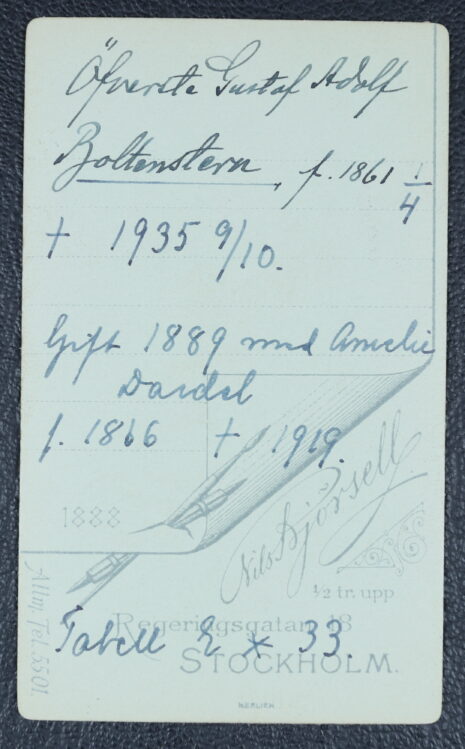 Öfverste Gustaf Adolf
Boltenstern, f. 1861 1/4
† 1935 9/10.
Gift 1889 med Amelie
Dardel
f. 1866 † 1919.
1888
Nils Björsell
½ tr. upp
Allm. Tel. 5501
Regeringsgatan 18
Tabell 2 * 33.
STOCKHOLM.